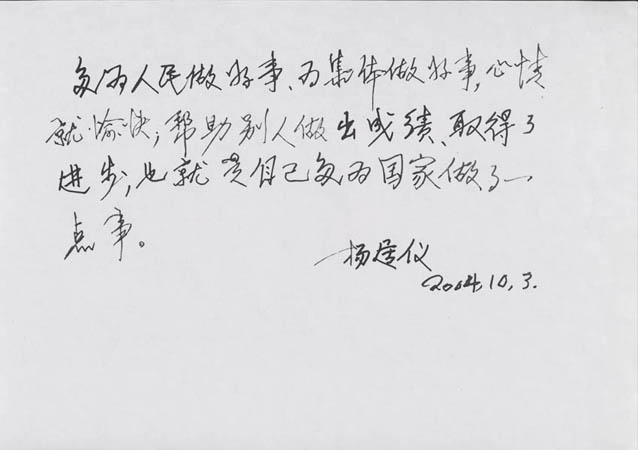 多为人民做好事、为集体做好事,心情
就愉快;帮助别人做出成绩、取得了
进步,也就是自己多为国家做了一
点事。
杨居仪
2004.10.3.